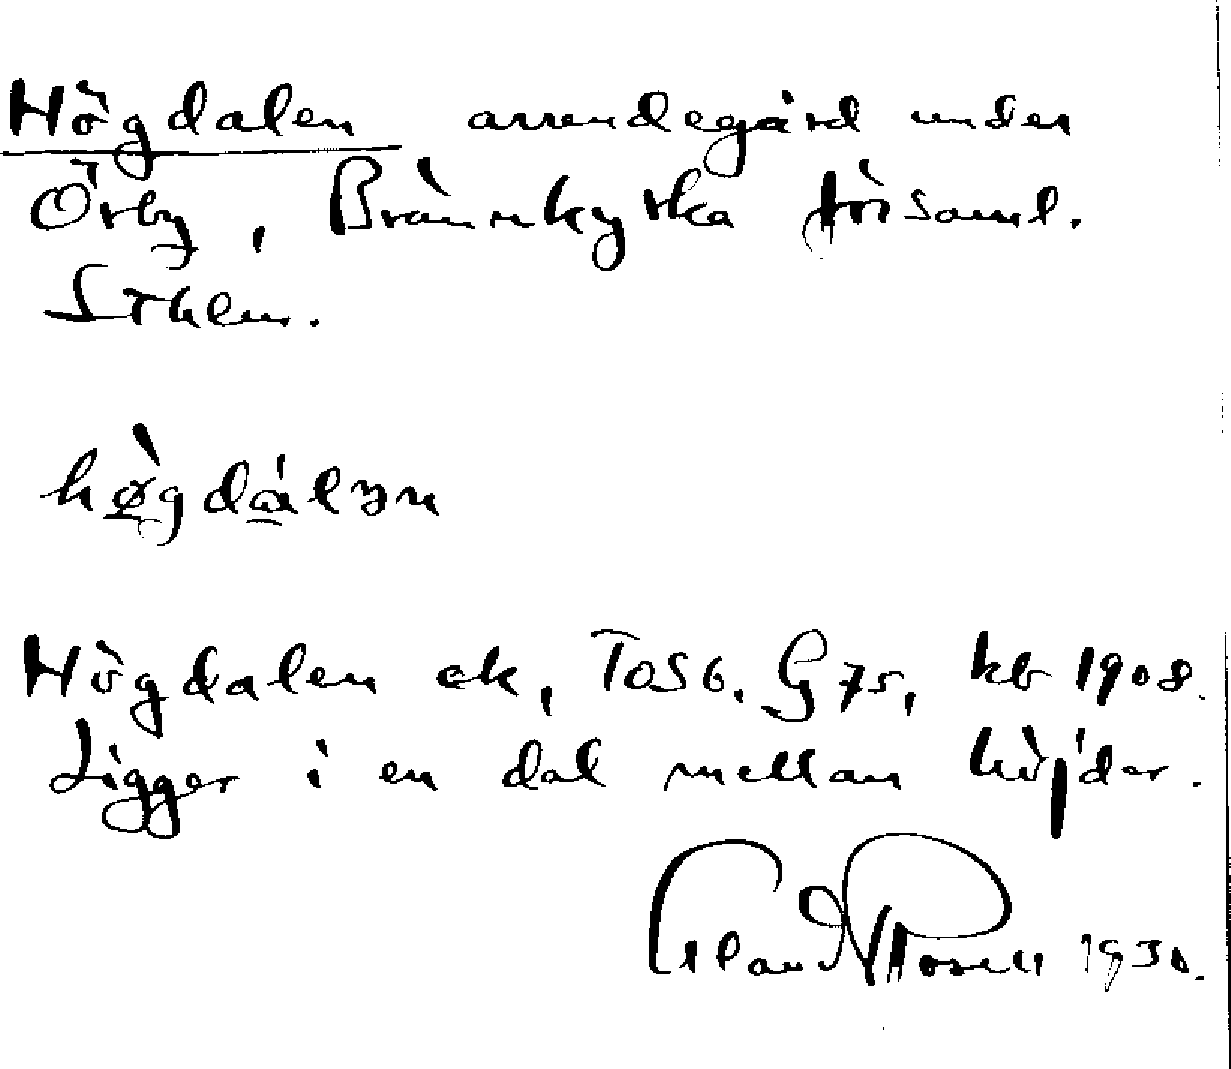 Högdalen arrendegård under
Örby, Brännkyrka församl.
Sthlm.
høgdálɜn
Högdalen ek, Tosb. G 75, kb 1908.
Ligger i en dal mellan höjder.
Rosén 1930.